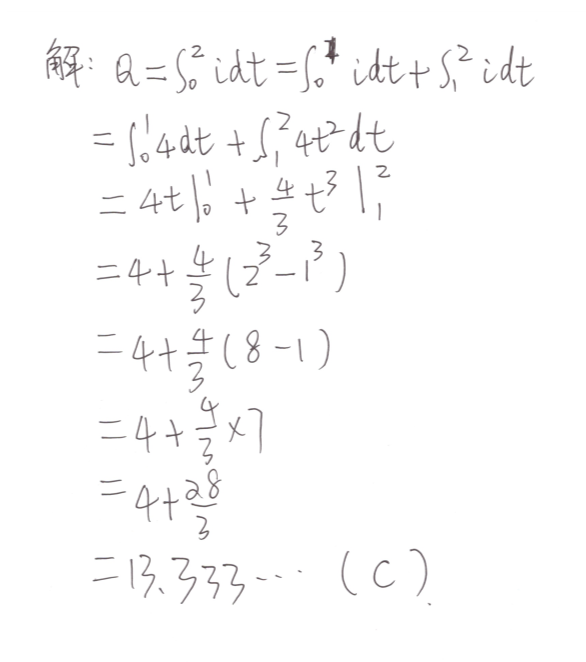 解: Q=∫₀² idt=∫₀¹ idt+∫₁² idt
=∫₀¹4dt+∫₁²4t²dt
=4t|₀¹+4/3 t³|₁²
=4+4/3(2³-1³)
=4+4/3(8-1)
=4+4/3×7
=4+28/3
=13.333… (C)